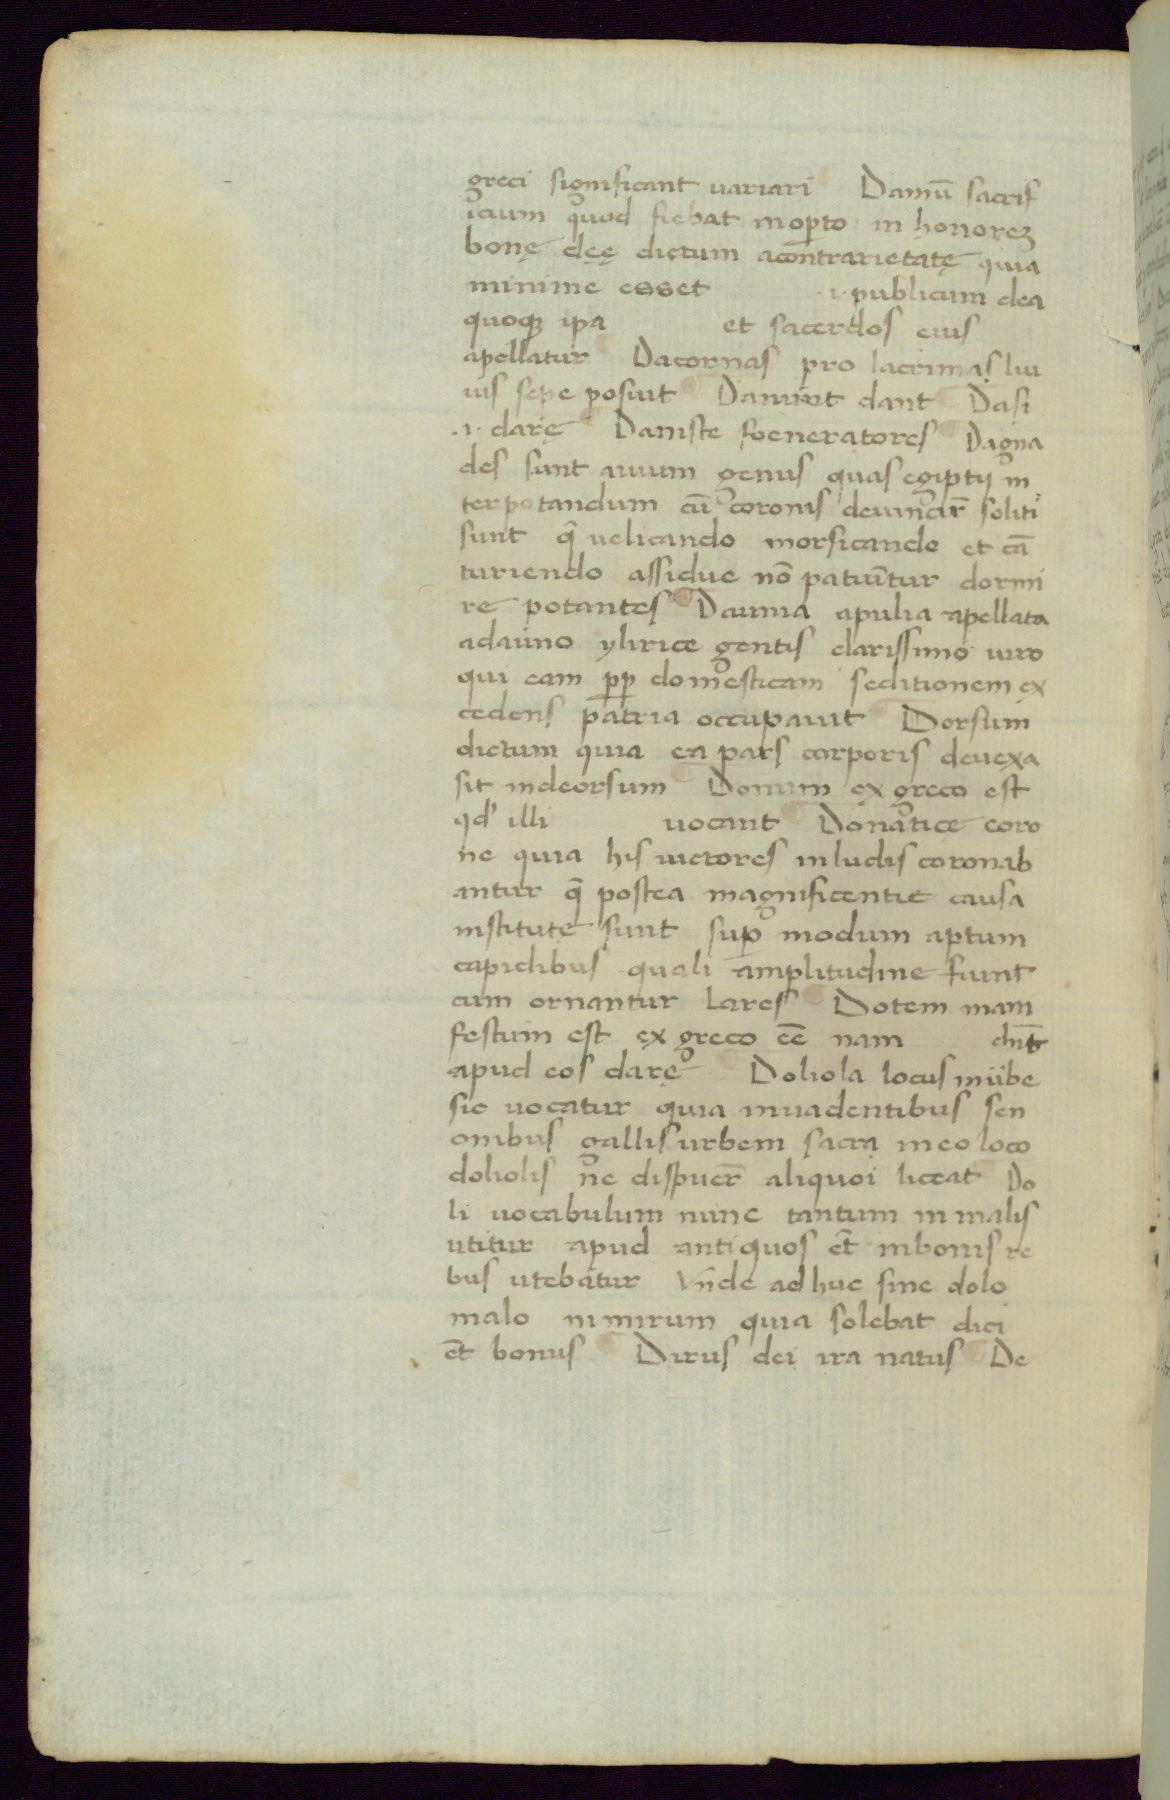 greci significant uariari Damū sacrif
icium quod fiebat inoꝑto in honorez
bonę dęę dictum acontrarietatę quia
minime esset .i. publicum dea
quoqꝫ ipa et sacerdos eius
apellatur Dacornas pro lacrimas liu
ius sepe posiut Danunt dant Dasi
.i. darę Daniste foeneratores Dagna
des sunt auium genus quas egiptij in
terpotandum cū coronis deuincir̄ soliti
sunt q̄ uelicando morsicando et cā
turiendo assidue nō patiūtur dormi
re potantes Daunia apulia apellata
adauno ylirice gentis clarissimo uiro
qui eam ꝓꝑ domesticam seditionem ex
cedens patria occupauit Dorsum
dictum quia ea pars corporis deuexa
sit indeorsum Donum ex greco est
qd' illi uocant Donatice coro
ne quia his uictores inludis coronab
antur q̄ postea magnificentie causa
institutę sunt suꝑ modum aptum
capidibus quali amplitudine fiunt
cum ornantur lares Dotem mani
festum est ex greco eē nam dn̄t
apud eos darę Doliola locus inūbe
sic uocatur quia inuadentibus sen
onibus gallis urbem sacra ineo loco
doliolis ne dispuer̄ aliquoi liceat Do
li uocabulum nunc tantum in malis
utitur apud antiquos et̄ inbonis re
bus utebatur Vn̄de adhuc sine dolo
malo nimirum quia solebat dici
et̄ bonus Dirus dei ira natus De